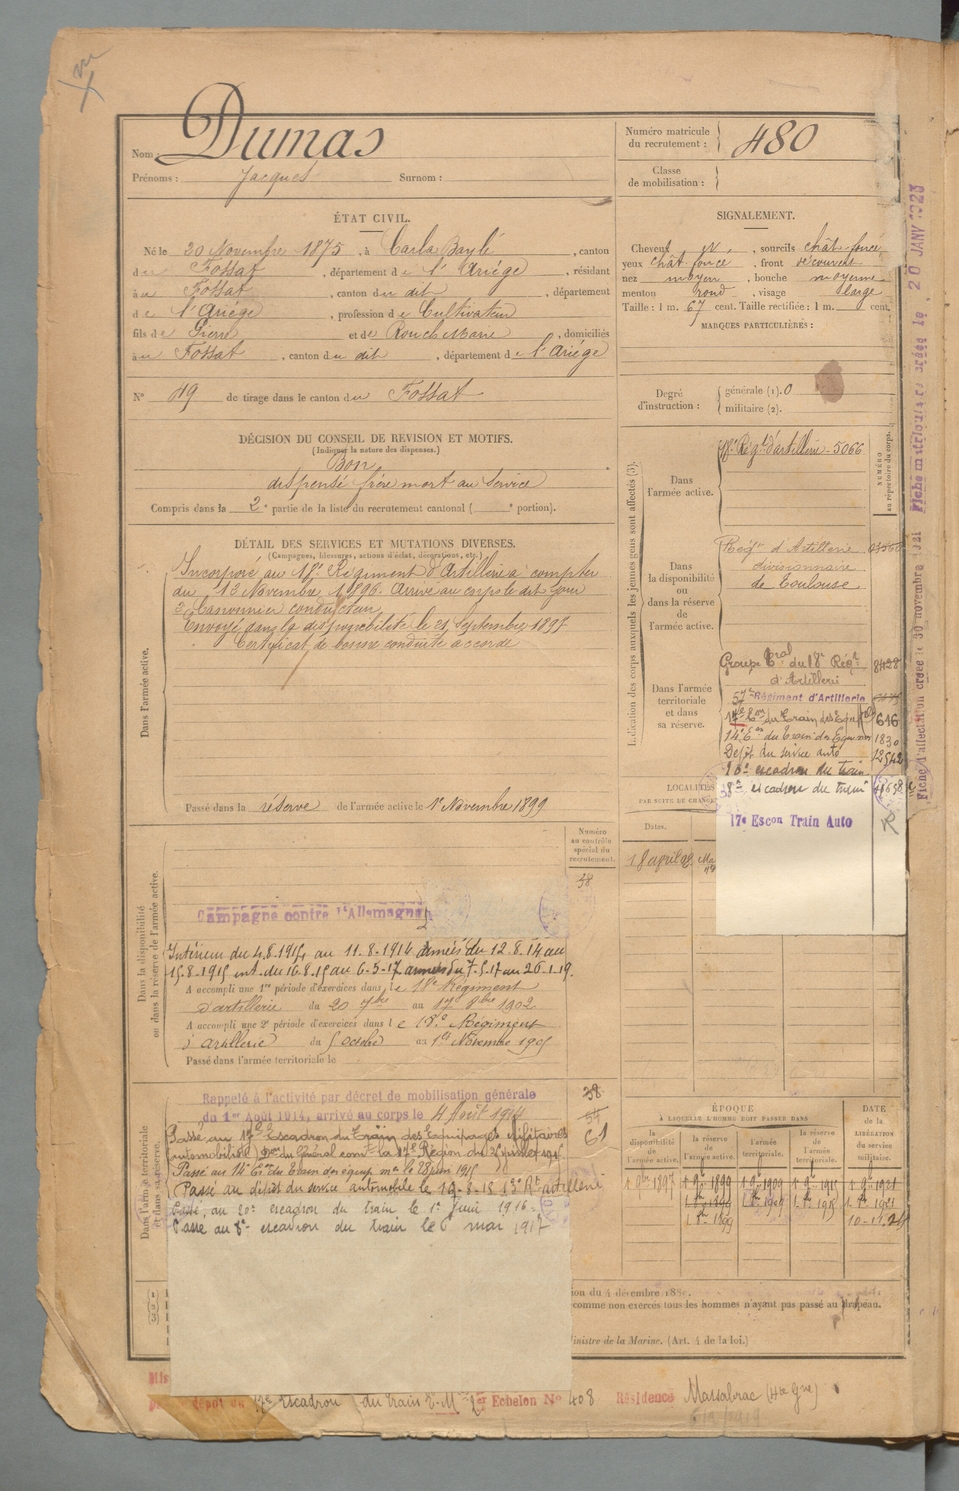 Nom : Dumas
Prénoms : Jacques Surnom :
Numéro matricule du recrutement : 480
Classe de mobilisation :
ÉTAT CIVIL.
Né le 20 Novembre 1875, à Carla Bayle, canton
du Fossat, département de l'Ariège, résidant
à u Fossat, canton du dit, département
de l'Ariège, profession de Cultivateur
fils de Pierre et de Rouch Marie, domiciliés
à u Fossat, canton du dit, département de l'Ariége
N° 19 de tirage dans le canton du Fossat
SIGNALEMENT.
Cheveux N, sourcils chât-foncé
yeux chât foncé, front découvert
nez moyen, bouche moyenne
menton rond, visage large
Taille : 1 m. 67 cent. Taille rectifiée : 1 m. cent.
MARQUES PARTICULIÈRES :
Degré d'instruction : générale (1). 0
militaire (2).
DÉCISION DU CONSEIL DE REVISION ET MOTIFS.
(Indiquer la nature des dispenses.)
Bon
dispensé frère mort au service
Compris dans la 2e partie de la liste du recrutement cantonal ( e portion).
DÉTAIL DES SERVICES ET MUTATIONS DIVERSES.
(Campagnes, blessures, actions d'éclat, décorations, etc.)
Dans l'armée active.
Incorporé au 18e Régiment d'Artillerie à compter
du 13 Novembre 1896. Arrivé au corps le dit jour
2e Canonnier conducteur
Envoyé dans la disponibilité le 21 Septembre 1897
Certificat de bonne conduite accordé
Passé dans la réserve de l'armée active le 1er Novembre 1899
Indication des corps auxquels les jeunes gens sont affectés (3).
NUMÉRO au répertoire du corps.
Dans l'armée active.
18e Régt d'artillerie - 5066
Dans la disponibilité ou dans la réserve de l'armée active.
Régt d'Artillerie
divisionnaire
de Toulouse
Dans l'armée territoriale et dans sa réserve.
Groupe Tral du 18e Régt 8428
d'Artillerie
57e Régiment d'Artillerie
17e Eon du Train des Equip 616
14e Eon du Train des Equipages 1830
Dépôt du service auto 12542
20e escadron du train
8e escadron du train
17e Escon Train Auto
LOCALITÉS
Dates.
18 avril 98
Numéro au contrôle spécial du recrutement.
38
Dans la disponibilité ou dans la réserve de l'armée active.
Campagne contre l'Allemagne
Intérieur du 4.8.1914 au 11.8.1914 armées du 12.8.14 au
15.8.1915 int. du 16.8.15 au 6-5-17 armées du 7.5.17 au 26.1.19.
A accompli une 1re période d'exercices dans le 18e Régiment
d'artillerie du 20 7bre au 17 8bre 1902
A accompli une 2e période d'exercices dans le 18e Régiment
d'artillerie du 5 octobre au 1er Novembre 1905
Passé dans l'armée territoriale le
Dans l'armée territoriale et dans sa réserve.
Rappelé à l'activité par décret de mobilisation générale
du 1er Août 1914, arrivé au corps le 4 Août 1914
38
54
61
Passé au 17e Escadron du Train des Equipages Militaires
Passé au 14e Eon du Train des équip. mres le 28 juin 1915
Passé au dépôt du service automobile le 19-8-15 13e Rt artillerie
Passé au 20e escadron du train le 1er Juin 1916.
Passé au 8e escadron du train le 6 mai 1917
ÉPOQUE
À LAQUELLE L'HOMME DOIT PASSER DANS
la disponibilité de l'armée active.
la réserve de l'armée active.
l'armée territoriale.
la réserve de l'armée territoriale.
DATE de la LIBÉRATION du service militaire.
1 9bre 1897 1 9bre 1899 1 9bre 1909 1 9bre 1915 1 9bre 1921
1 8bre 1899
ion du 4 décembre 1889.
comme non exercés tous les hommes n'ayant pas passé au drapeau.
Ministre de la Marine. (Art. 4 de la loi.)
dépôt du 17e Escadron du train E.M. 2er Echelon N° 408 Résidence Massabrac (Hte Gne)
Fiche d'affectation créée le 30 novembre 1921 Fiche matriculaire créée le, 20 JANV 1928